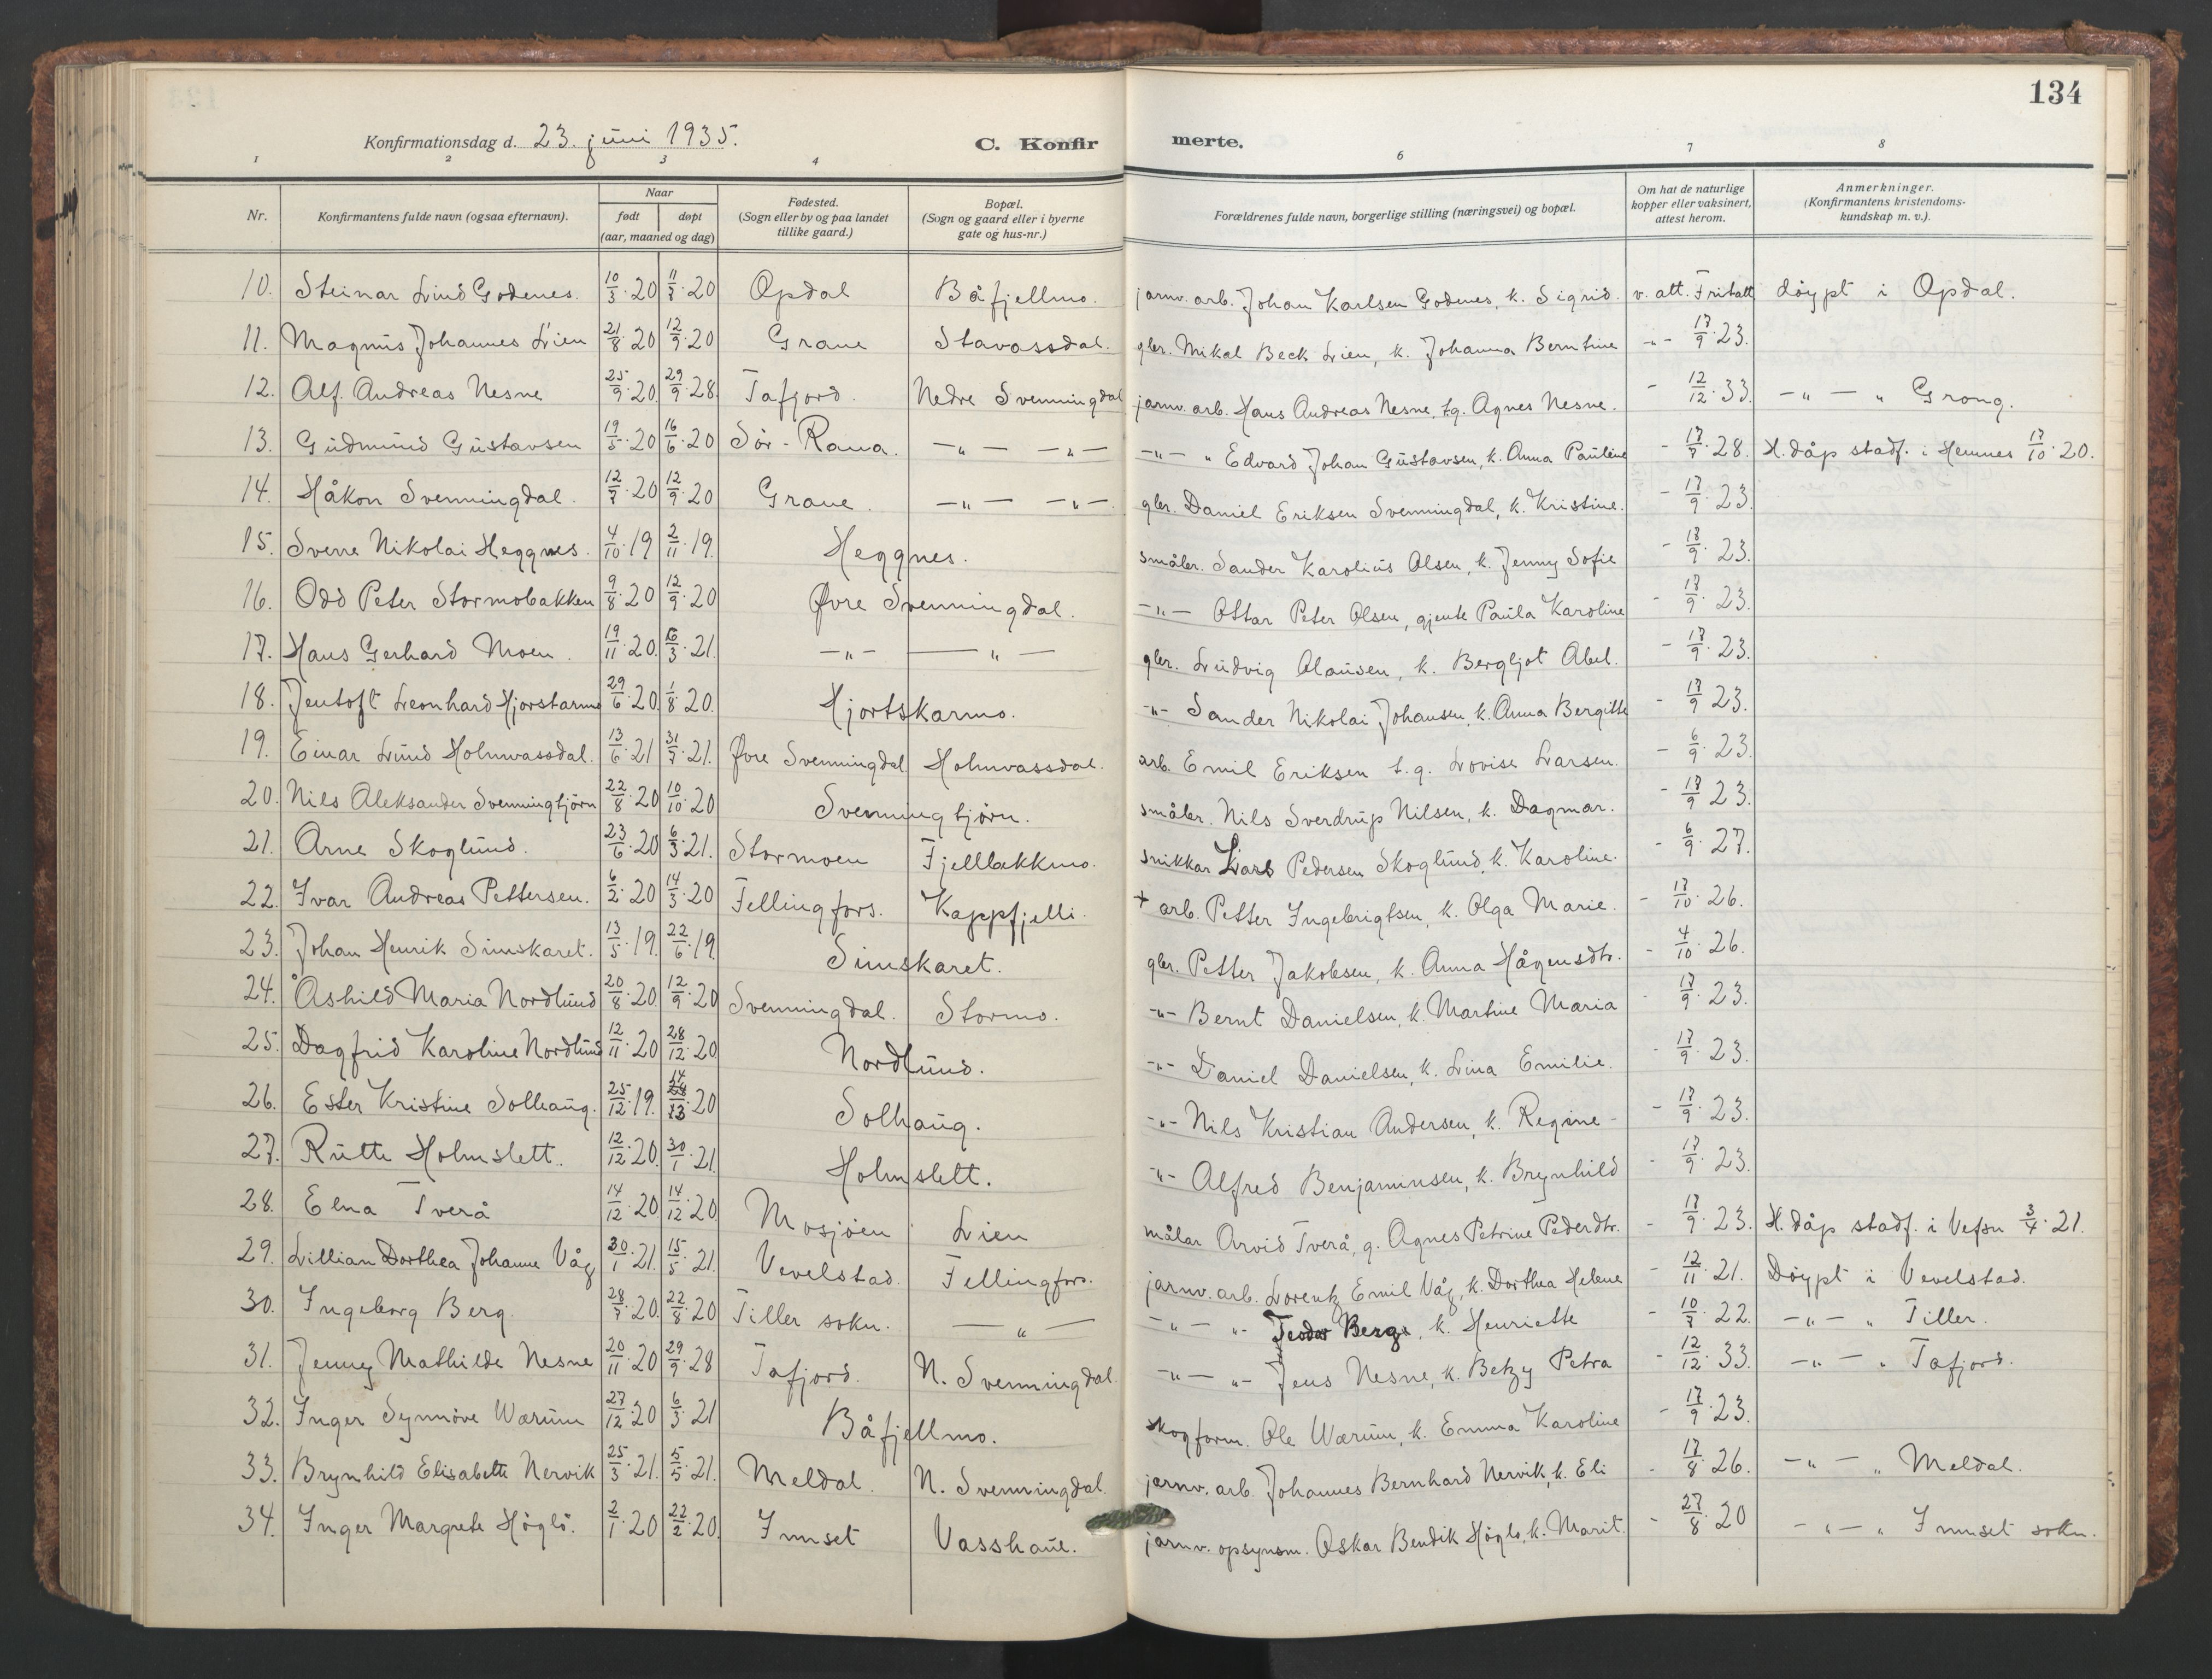 134
Konfirmationsdag d. 23. juni 1935. C. Konfirmerte.
1 2 3 4 6 7 8
Nr. Konfirmantens fulde navn (ogsaa efternavn). Naar født døpt (aar, maaned og dag) Fødested. (Sogn eller by og paa landet tillike gaard.) Bopæl. (Sogn og gaard eller i byerne gate og hus-nr.) Forældrenes fulde navn, borgerlige stilling (næringsvei) og bopæl. Om hat de naturlige kopper eller vaksinert, attest herom. Anmerkninger. (Konfirmantens kristendomskundskap m. v.).
10. Steinar Lind Godenes. 10/3.20 11/7.20 Opdal Båfjellmo. jarnv. arb. Johan Karlsen Godenes, k. Sigrid. v. att. Fritatt døypt i Opdal.
11. Magnus Johannes Lien 21/8.20 12/9.20 Grane Stavassdal. gbr. Mikal Beck Lien, k. Johanna Berntine -"- 17/9.23.
12. Alf Andreas Nesne 25/9.20. 29/9.28. Tafjord. Nedre Svenningdal jarnv. arb. Hans Andreas Nesne, t.g. Agnes Nesne. - 12/12.33. -"- " Grong.
13. Gudmund Gustavsen 19/5.20 16/6.20 Sør-Rana. -"- -"- -"- " Edvard Johan Gustavsen, k. Anna Pauline - 17/7.28. H.dåp stadf. i Hemnes 17/10.20.
14. Håkon Svenningdal. 12/7.20 12/9.20 Grane. -"- -"- gbr. Daniel Eriksen Svenningdal, k. Kristine. - 17/9.23.
15. Sverre Nikolai Heggnes. 4/10.19 2/11.19. Heggnes. småbr. Sander Karolius Olsen, k. Jenny Sofie - 18/9.23.
16. Odd Peter Stormobakken 9/8.20 12/9.20 Øvre Svenningdal. -"- Ottar Peter Olsen, gjente Paula Karoline - 17/9.23.
17. Hans Gerhard Moen. 19/11.20. 6/3.21. -"- -"- gbr. Ludvig Olausen, k. Bergljot Abel. - 17/9.23.
18. Jentoft Leonhard Hjorstarmo 29/6.20. 1/8.20. Hjortskarmo. -"- Sander Nikolai Johansen, k. Anna Bergitte - 17/9.23.
19. Einar Lund Holmvassdal. 13/6.21 31/7.21. Øvre Svenningdal Holmvassdal. arb. Emil Eriksen t.g. Lovise Larsen. - 6/9.23.
20. Nils Aleksander Svenningtjørn 22/8.20 10/10.20 Svenningtjørn. småbr. Nils Sverdrup Nilsen, k. Dagmar. - 17/9.23.
21. Arne Skoglund. 23/6.20 6/3.21. Stormoen Fjellbekkmo. snikkar Lars Pedersen Skoglund, k. Karoline. - 6/9.27.
22. Ivar Andreas Pettersen. 6/2.20 14/3.20 Fellingfors. Kappfjelli. + arb. Petter Ingebrigtsen, k. Olga Marie. - 17/10.26.
23. Johan Henrik Simskaret. 13/5.19. 22/6.19. Simskaret. gbr. Petter Jakobsen, k. Anna Hågensdtr. - 4/10.26.
24. Åshild Maria Nordlund 20/8.20. 12/9.20 Svenningdal. Stormo. -"- Bernt Danielsen, k. Martine Maria - 17/9.23.
25. Dagfrid Karoline Nordlund 12/11.20 28/12.20 Nordlund. -"- Daniel Danielsen, k. Lina Emilie. - 17/9.23.
26. Ester Kristine Solhaug. 25/12.19. 14/3.20 Solhaug. -"- Nils Kristian Andersen, k. Regine - - 17/9.23.
27. Rutte Holmslett. 12/12.20. 30/1.21. Holmslett. -"- Alfred Benjaminsen, k. Brynhild - 17/9.23.
28. Elna Tverå 14/12.20 14/12.20. Mosjøen Lien målar Arvid Tverå, g. Agnes Petrine Pederdtr. - 17/9.23. H.dåp stadf. i Vefsn 3/4.21.
29. Lillian Dorthea Johanne Våg 30/1.21. 15/5.21. Vevelstad. Fellingfors. jarnv. arb. Lorentz Emil Våg, k. Dorthea Helene - 12/11.21. Døypt i Vevelstad.
30. Ingeborg Berg. 28/7.20. 22/8.20 Tiller sokn. -"- -"- "- Teodor Berg, k. Henriette - 10/7.22. -"- " Tiller.
31. Jenny Mathilde Nesne 20/11.20 29/9.28 Tafjord. N. Svenningdal. -"- "- Jens Nesne, k. Betzy Petra - 12/12.33. -"- " Tafjord.
32. Inger Synnøve Wærum 27/12.20 6/3.21 Båfjellmo. skogform. Ole Wærum, k. Emma Karoline - 17/9.23.
33. Brynhild Elisabette Nervik 25/3.21. 5/5.21. Meldal. N. Svenningdal. jarnv. arb. Johannes Bernhard Nervik, k. Eli - 17/8.26. -"- " Meldal.
34. Inger Margrete Höglö. 2/1.20 22/2.20. Innset Vasshaue. jarnv. opsynsm. Oskar Bendik Höglo, k. Marit. - 27/8.20 -"- " Innset sokn.